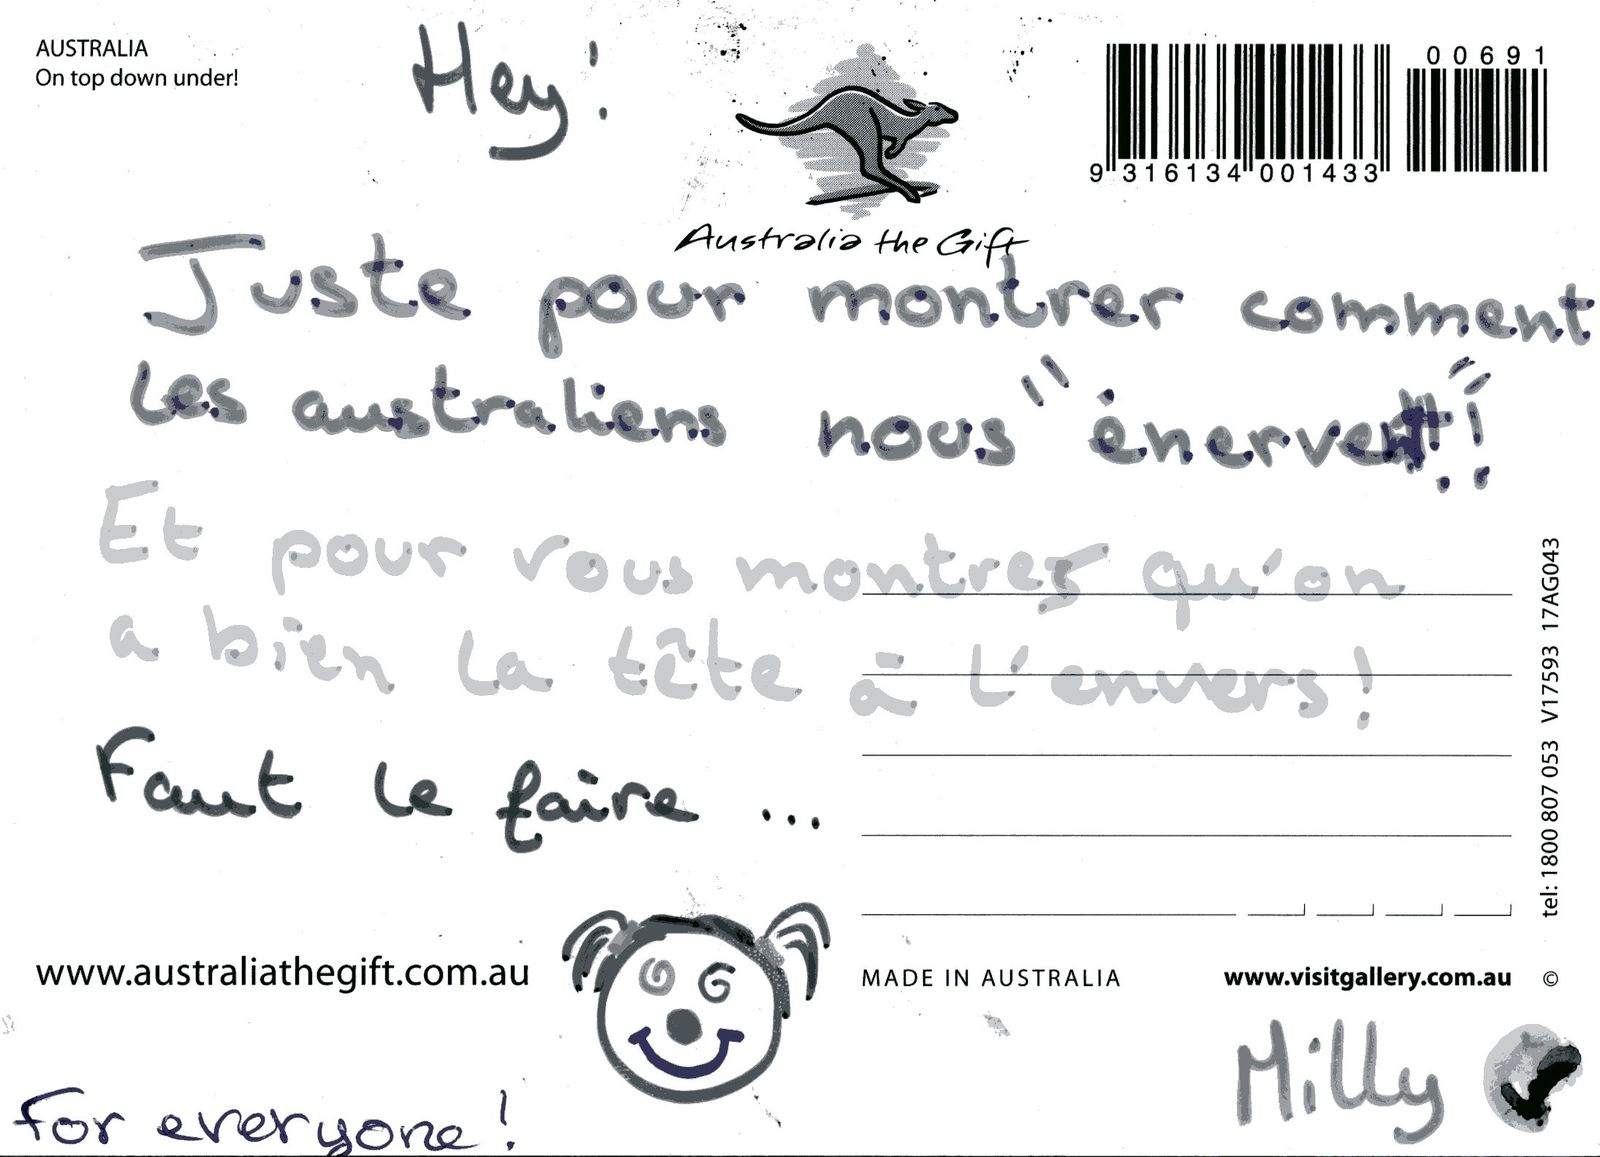 AUSTRALIA
On top down under!
Hey!
00691
9 316134 001433
Australia the Gift
Juste pour montrer comment
les australiens nous "énervent"!!
Et pour vous montrer qu'on
a bien la tête à l'envers!
Faut le faire...
tel: 1800 807 053 V17593 17AG043
www.australiathegift.com.au
MADE IN AUSTRALIA
www.visitgallery.com.au ©
Milly
For everyone!